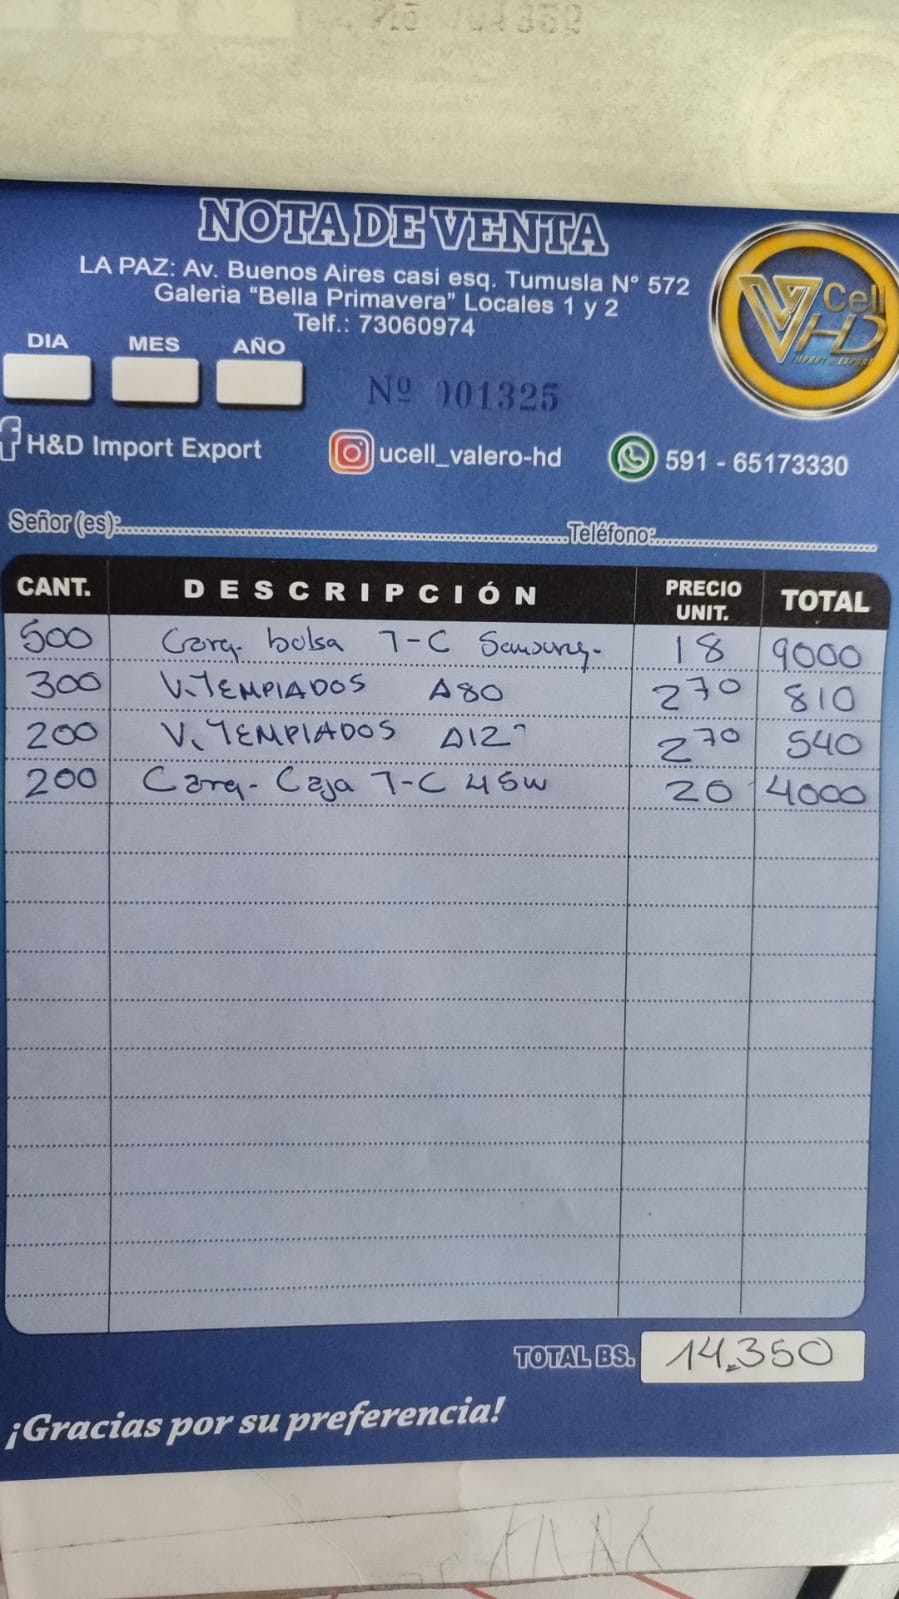 NOTA DE VENTA
LA PAZ: Av. Buenos Aires casi esq. Tumusla N° 572
Galeria "Bella Primavera" Locales 1 y 2
Telf.: 73060974
V Cell
HD
IMPORT - EXPORT
DIA MES AÑO
Nº 001325
H&D Import Export ucell_valero-hd 591 - 65173330
Señor (es): Teléfono:
CANT. DESCRIPCIÓN PRECIO UNIT. TOTAL
500 Carg. bolsa T-C Samsung. 18 9000
300 V.TEMPLADOS A80 2 70 810
200 V.TEMPLADOS A12 2 70 540
200 Carg. Caja T-C 45W 20 4000
TOTAL BS. 14.350
¡Gracias por su preferencia!